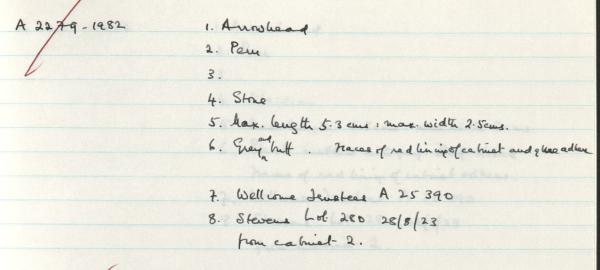 A 2279-1982
1. Arrowhead
2. Peru
3.
4. Stone
5. Max. length 5.3 cms, max. width 2.5cms.
6. Grey and buff. Traces of red lining of cabinet and glue adhere
7. Wellcome Trustees A 25390
8. Stevens Lot 280 28/8/23
from cabinet 2.